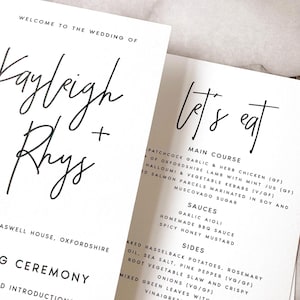 WELCOME TO THE WEDDING OF
Kayleigh
+
Rhys
ASWELL HOUSE, OXFORDSHIRE
G CEREMONY
D INTRODUCTION
let's eat
MAIN COURSE
PATCHCOCK GARLIC & HERB CHICKEN (GF)
OF OXFORDSHIRE LAMB WITH MINT JUS (GF)
HALLOUMI & VEGETABLE KEBABS (V)(GF)
SALMON PARCELS MARINATED IN SOY AND
MUSCOVADO SUGAR
SAUCES
GARLIC AIOLI
HOMEMADE BBQ SAUCE
SPICY HONEY MUSTARD
SIDES
HASSELBACK POTATOES, ROSEMARY
OIL, SEA SALT, PINK PEPPER (VG/GF)
ROOT VEGETABLE SLAW AND CRISPY
MIXED GREEN LEAVES WITH
VINAIGRE